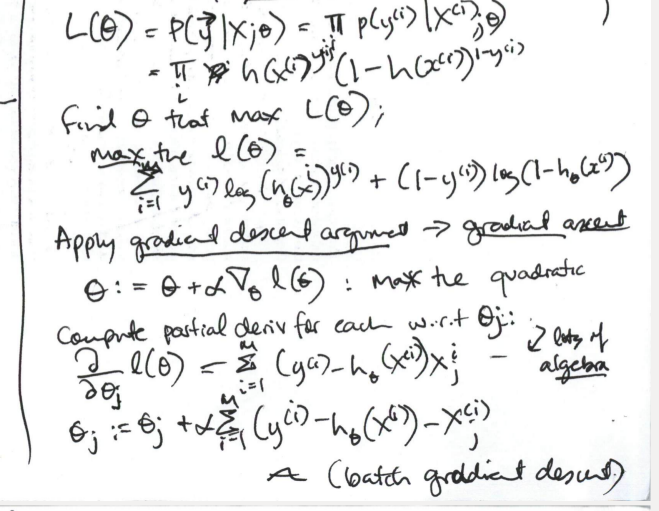 L(θ) = P(y⃗|X;θ) = Π p(y⁽ⁱ⁾|X⁽ⁱ⁾;θ)
= Π_i h(x⁽ⁱ⁾)^y⁽ⁱ⁾ (1-h(x⁽ⁱ⁾))^1-y⁽ⁱ⁾
Find θ that max L(θ);
max the l(θ) =
Σ_{i=1}^{m} y⁽ⁱ⁾ log (h_θ(xⁱ))^y⁽ⁱ⁾ + (1-y⁽ⁱ⁾) log(1-h_θ(x⁽ⁱ⁾))
Apply gradient descent argument → gradient ascent
θ := θ + α∇_θ l(θ) : max the quadratic
Compute partial deriv for each w.r.t θj:
∂/∂θj l(θ) = Σ_{i=1}^{m} (y⁽ⁱ⁾ - h_θ(x⁽ⁱ⁾)) x_j^i - lots of
algebra
θj := θj + α Σ_{i=1}^{m} (y⁽ⁱ⁾ - h_θ(x⁽ⁱ⁾) - X_j⁽ⁱ⁾
(batch graddient descent)